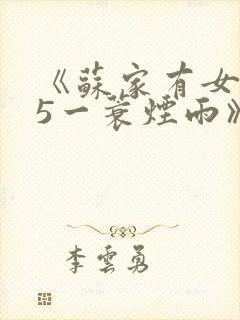 《蘇家有女
5一蓑煙雨》
李雲勇